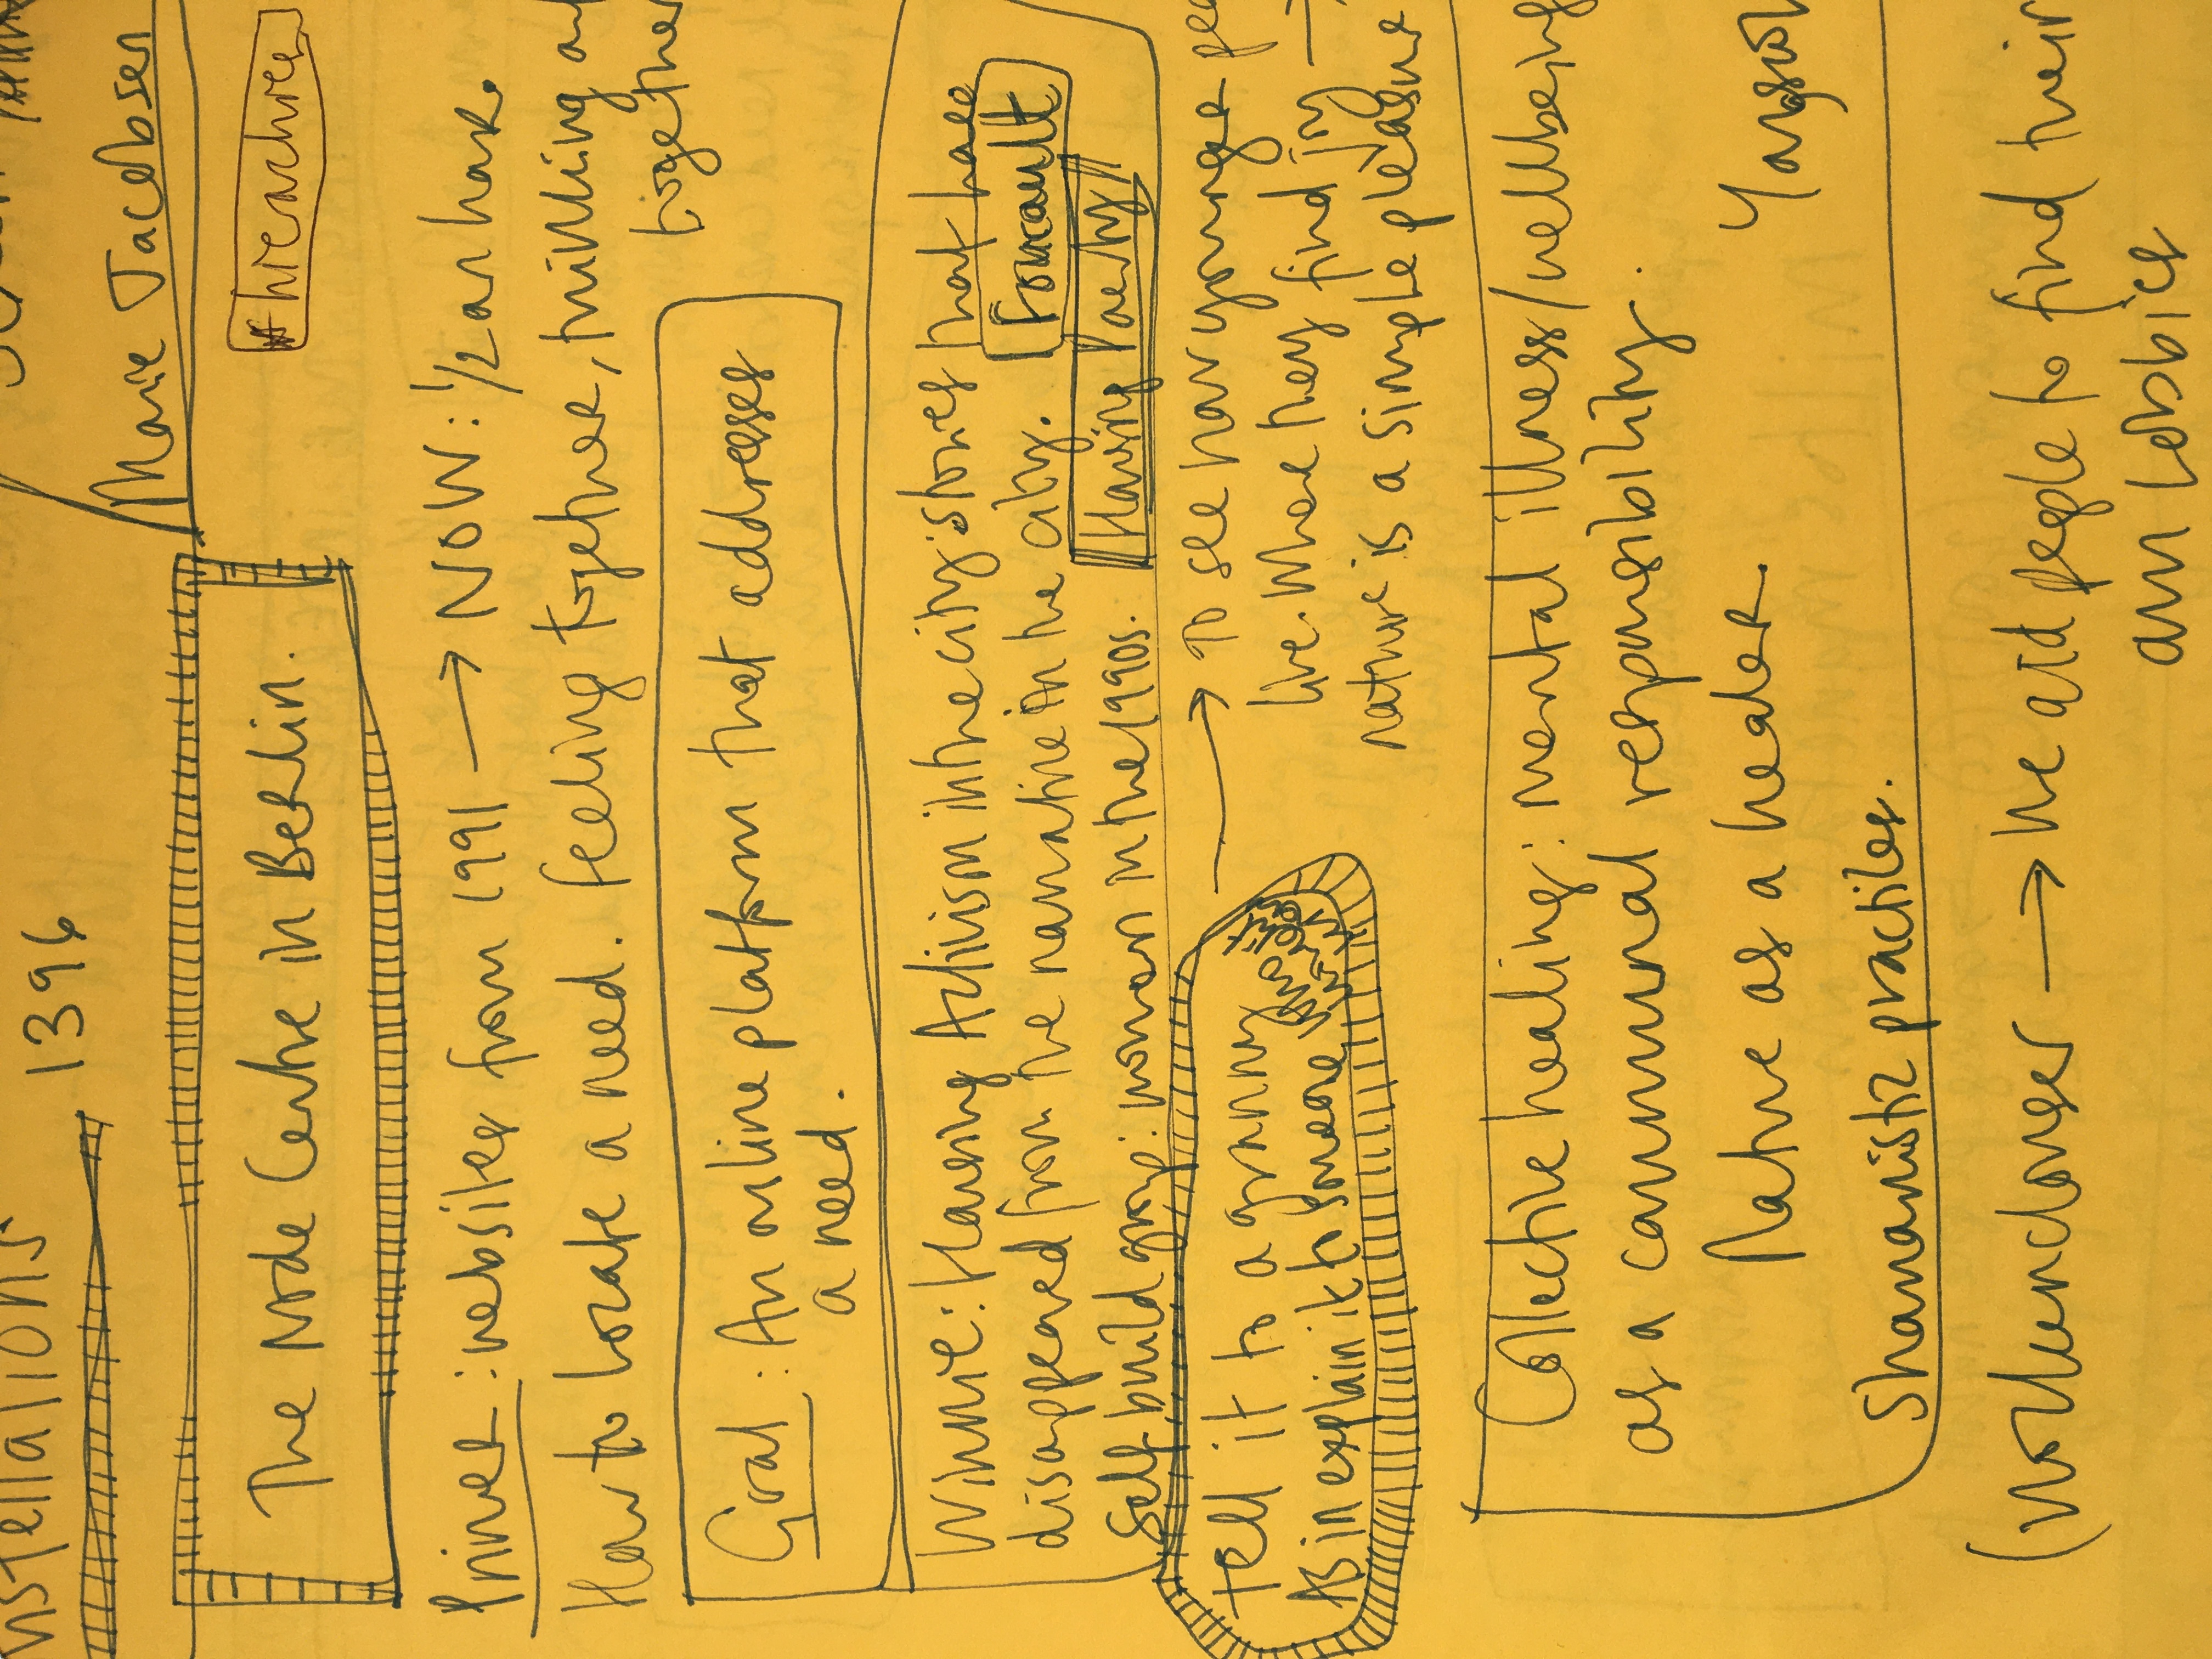 1396
Marie Jacobsen
The Node Centre in Berlin.
#
: websites from 1991 → NOW: 1/2 an hour.
How to locate a need. feeling together, thinking
together
Goal: An online platform that addresses
a need.
Winnie: Housing Activism in the city: stories that have
disappeared from the narrative in the city.
Foucault
Self build group: women in the 1990s.
Housing Poetry
Tell it to a granny
As in explain it to someone
→ To see how younger
live. Where they find joy →
nature is a simple pleasure
Collective healing: mental illness/wellbeing
as a communal responsibility.
Nature as a healer.
Shamanistic practices.
→ we aid people to find their
own